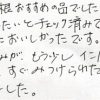 根おすすめの品でした
たいセチェック済みで
においしかったです。
みが、もう少しイン
、すぐみつけられた
した。